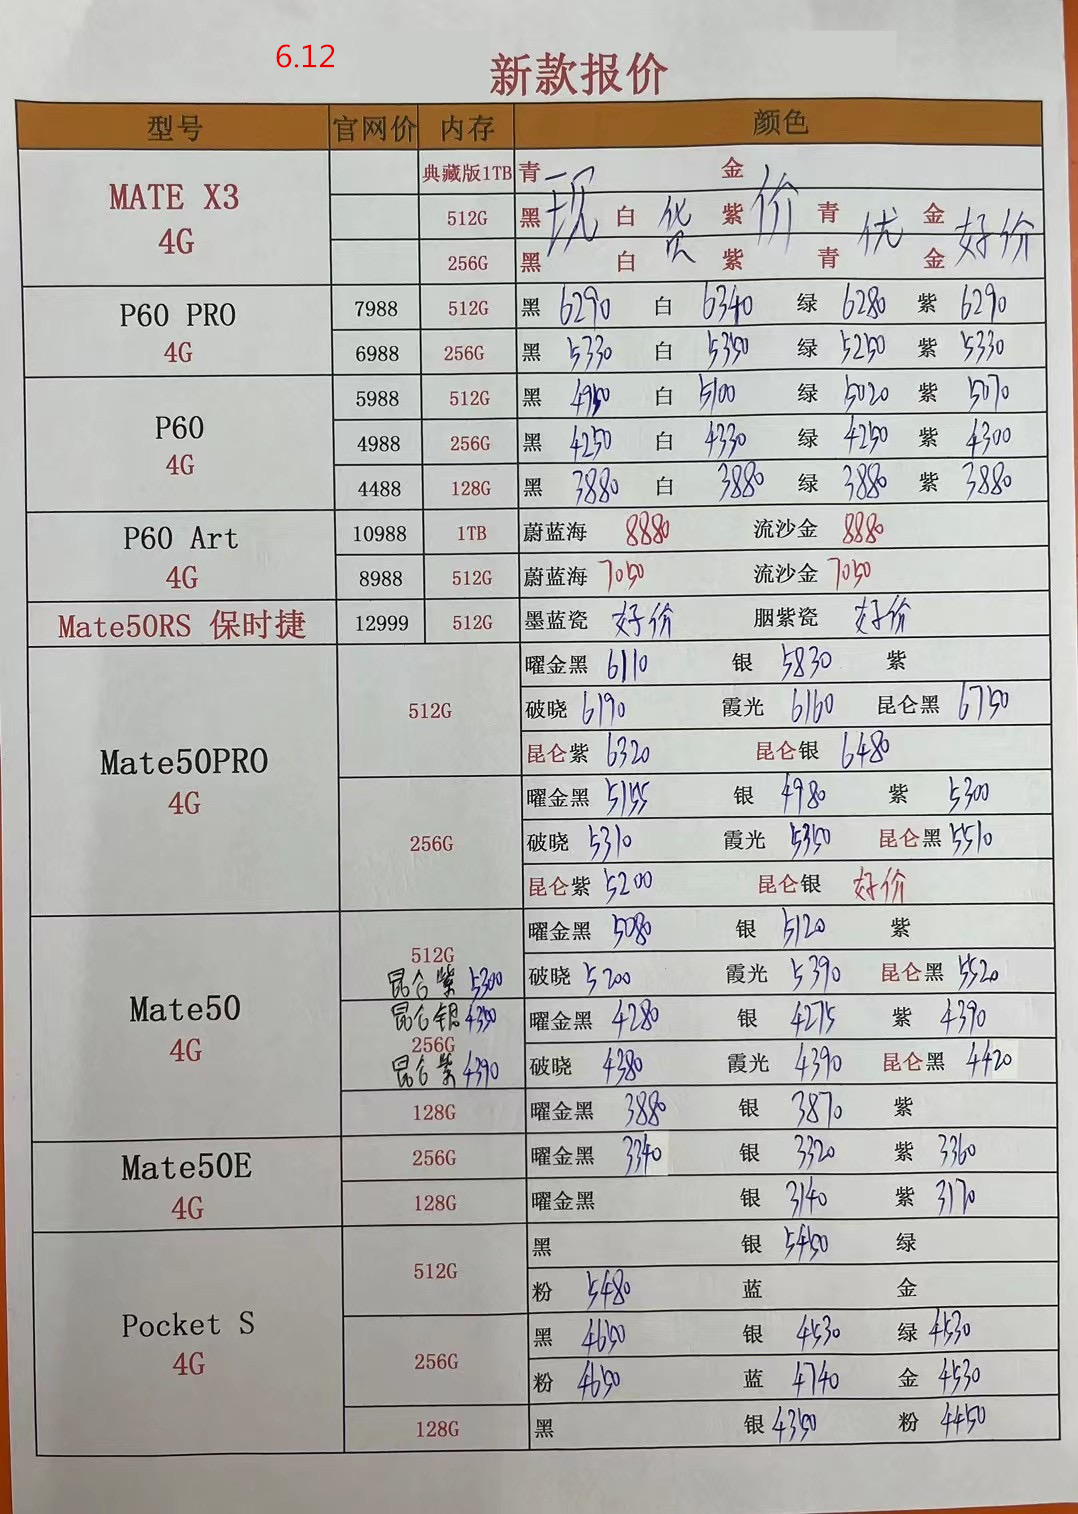 6.12
新款报价
型号 官网价 内存 颜色
MATE X3 4G
典藏版1TB 青 金
512G 黑 白 紫 青 金
256G 黑 白 紫 青 金
现货价优 好价
P60 PRO 4G
7988 512G 黑 6290 白 6340 绿 6280 紫 6290
6988 256G 黑 5330 白 5350 绿 5250 紫 5330
P60 4G
5988 512G 黑 4950 白 5100 绿 5020 紫 5070
4988 256G 黑 4250 白 4330 绿 4250 紫 4300
4488 128G 黑 3880 白 3880 绿 3880 紫 3880
P60 Art 4G
10988 1TB 蔚蓝海 8880 流沙金 8880
8988 512G 蔚蓝海 7050 流沙金 7050
Mate50RS 保时捷 12999 512G 墨蓝瓷 好价 胭紫瓷 好价
Mate50PRO 4G
512G
曜金黑 6110 银 5830 紫
破晓 6190 霞光 6160 昆仑黑 6750
昆仑紫 6320 昆仑银 6480
256G
曜金黑 5155 银 4980 紫 5300
破晓 5310 霞光 5350 昆仑黑 5510
昆仑紫 5200 昆仑银 好价
Mate50 4G
512G
昆仑紫 5300
曜金黑 5080 银 5120 紫
破晓 5200 霞光 5390 昆仑黑 5520
昆仑银 4350
256G
昆仑紫 4390
曜金黑 4280 银 4275 紫 4390
破晓 4380 霞光 4390 昆仑黑 4420
128G 曜金黑 3880 银 3870 紫
Mate50E 4G
256G 曜金黑 3340 银 3320 紫 3360
128G 曜金黑 银 3140 紫 3170
Pocket S 4G
512G
黑 银 5450 绿
粉 5480 蓝 金
256G
黑 4650 银 4530 绿 4530
粉 4650 蓝 4740 金 4530
128G 黑 银 4350 粉 4450